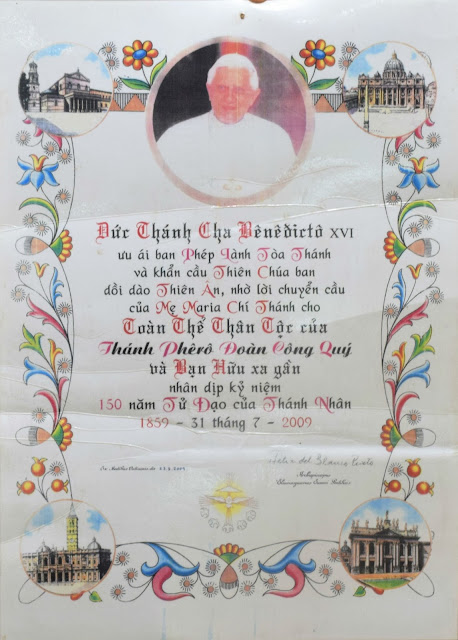 Đức Thánh Cha Bênêđictô XVI
ưu ái ban Phép Lành Tòa Thánh
và khẩn cầu Thiên Chúa ban
dồi dào Thiên Ân, nhờ lời chuyển cầu
của Mẹ Maria Chí Thánh cho
Toàn Thể Thân Tộc của
Thánh Phêrô Đoàn Công Quý
và Bạn Hữu xa gần
nhân dịp kỷ niệm
150 năm Tử Đạo của Thánh Nhân
1859 - 31 tháng 7 - 2009